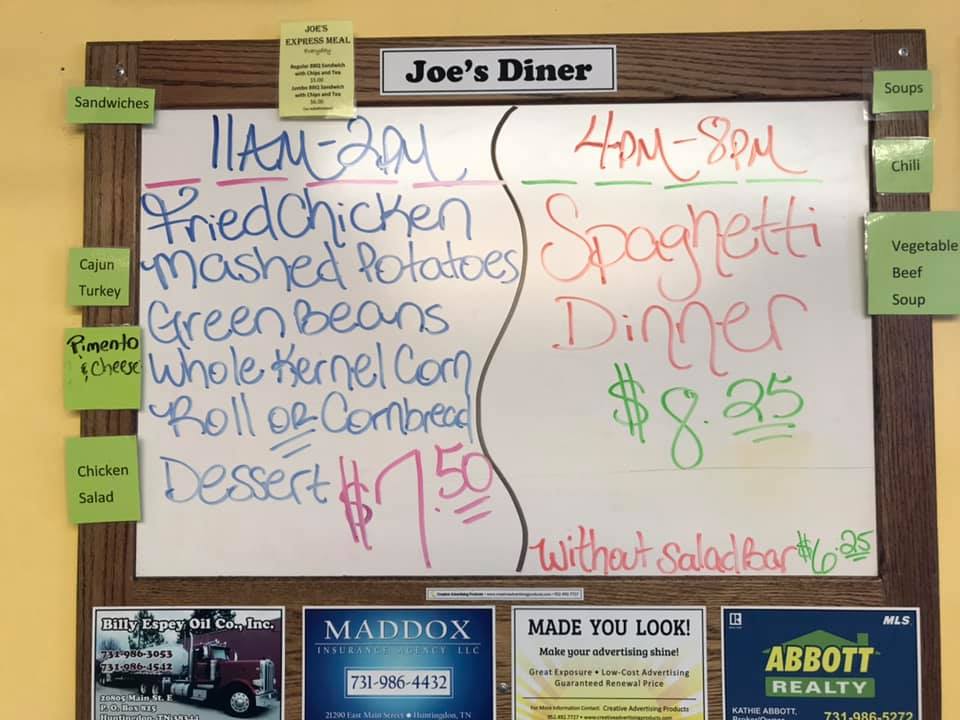 JOE'S
EXPRESS MEAL
Everyday
Regular BBQ Sandwich
with Chips and Tea
$5.00
Jumbo BBQ Sandwich
with Chips and Tea
$6.00
Joe's Diner
Sandwiches
Cajun
Turkey
Pimento
& Cheese
Chicken
Salad
11AM-2PM
Fried Chicken
Mashed Potatoes
Green Beans
Whole Kernel Corn
Roll or Cornbread
Dessert $7.50
4PM-8PM
Spaghetti
Dinner
$8.25
Without Salad Bar $6.25
Soups
Chili
Vegetable
Beef
Soup
Creative Advertising Products • www.creativeadvertisingproducts.com • 952.492.7727
Billy Espey Oil Co., Inc.
731-986-3053
731-986-4542
20805 Main St. E
P. O. Box 825
Huntingdon, TN 38344
MADDOX
INSURANCE AGENCY LLC
731-986-4432
21290 East Main Street • Huntingdon, TN
MADE YOU LOOK!
Make your advertising shine!
Great Exposure • Low-Cost Advertising
Guaranteed Renewal Price
For More Information Contact Creative Advertising Products
952.492.7727 • www.creativeadvertisingproducts.com
R
REALTOR
MLS
ABBOTT
REALTY
KATHIE ABBOTT,
Broker/Owner
731-986-5272